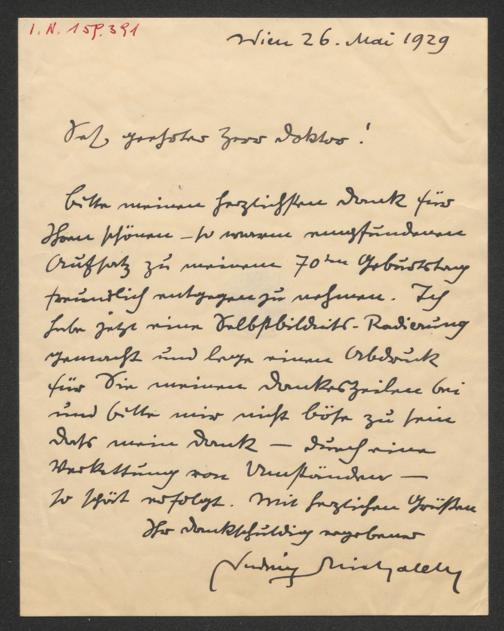 I.N. 158.391
Wien 26. Mai 1929
Sehr geehrter Herr Doktor!
bitte meinen herzlichsten Dank für
Ihren schönen – so warm empfundenen
Aufsatz zu meinem 70ten Geburtstag
freundlich entgegen zu nehmen. Ich
habe jetzt eine Selbstbildnis-Radierung
gemacht und lege einen Abdruck
für Sie meinen Dankeszeilen bei
und bitte mir nicht böse zu sein
dass mein Dank – durch eine
Verkettung von Umständen –
so spät erfolgt. Mit herzlichen Grüßen
Ihr dankschuldig ergebener
Ludwig Michalek